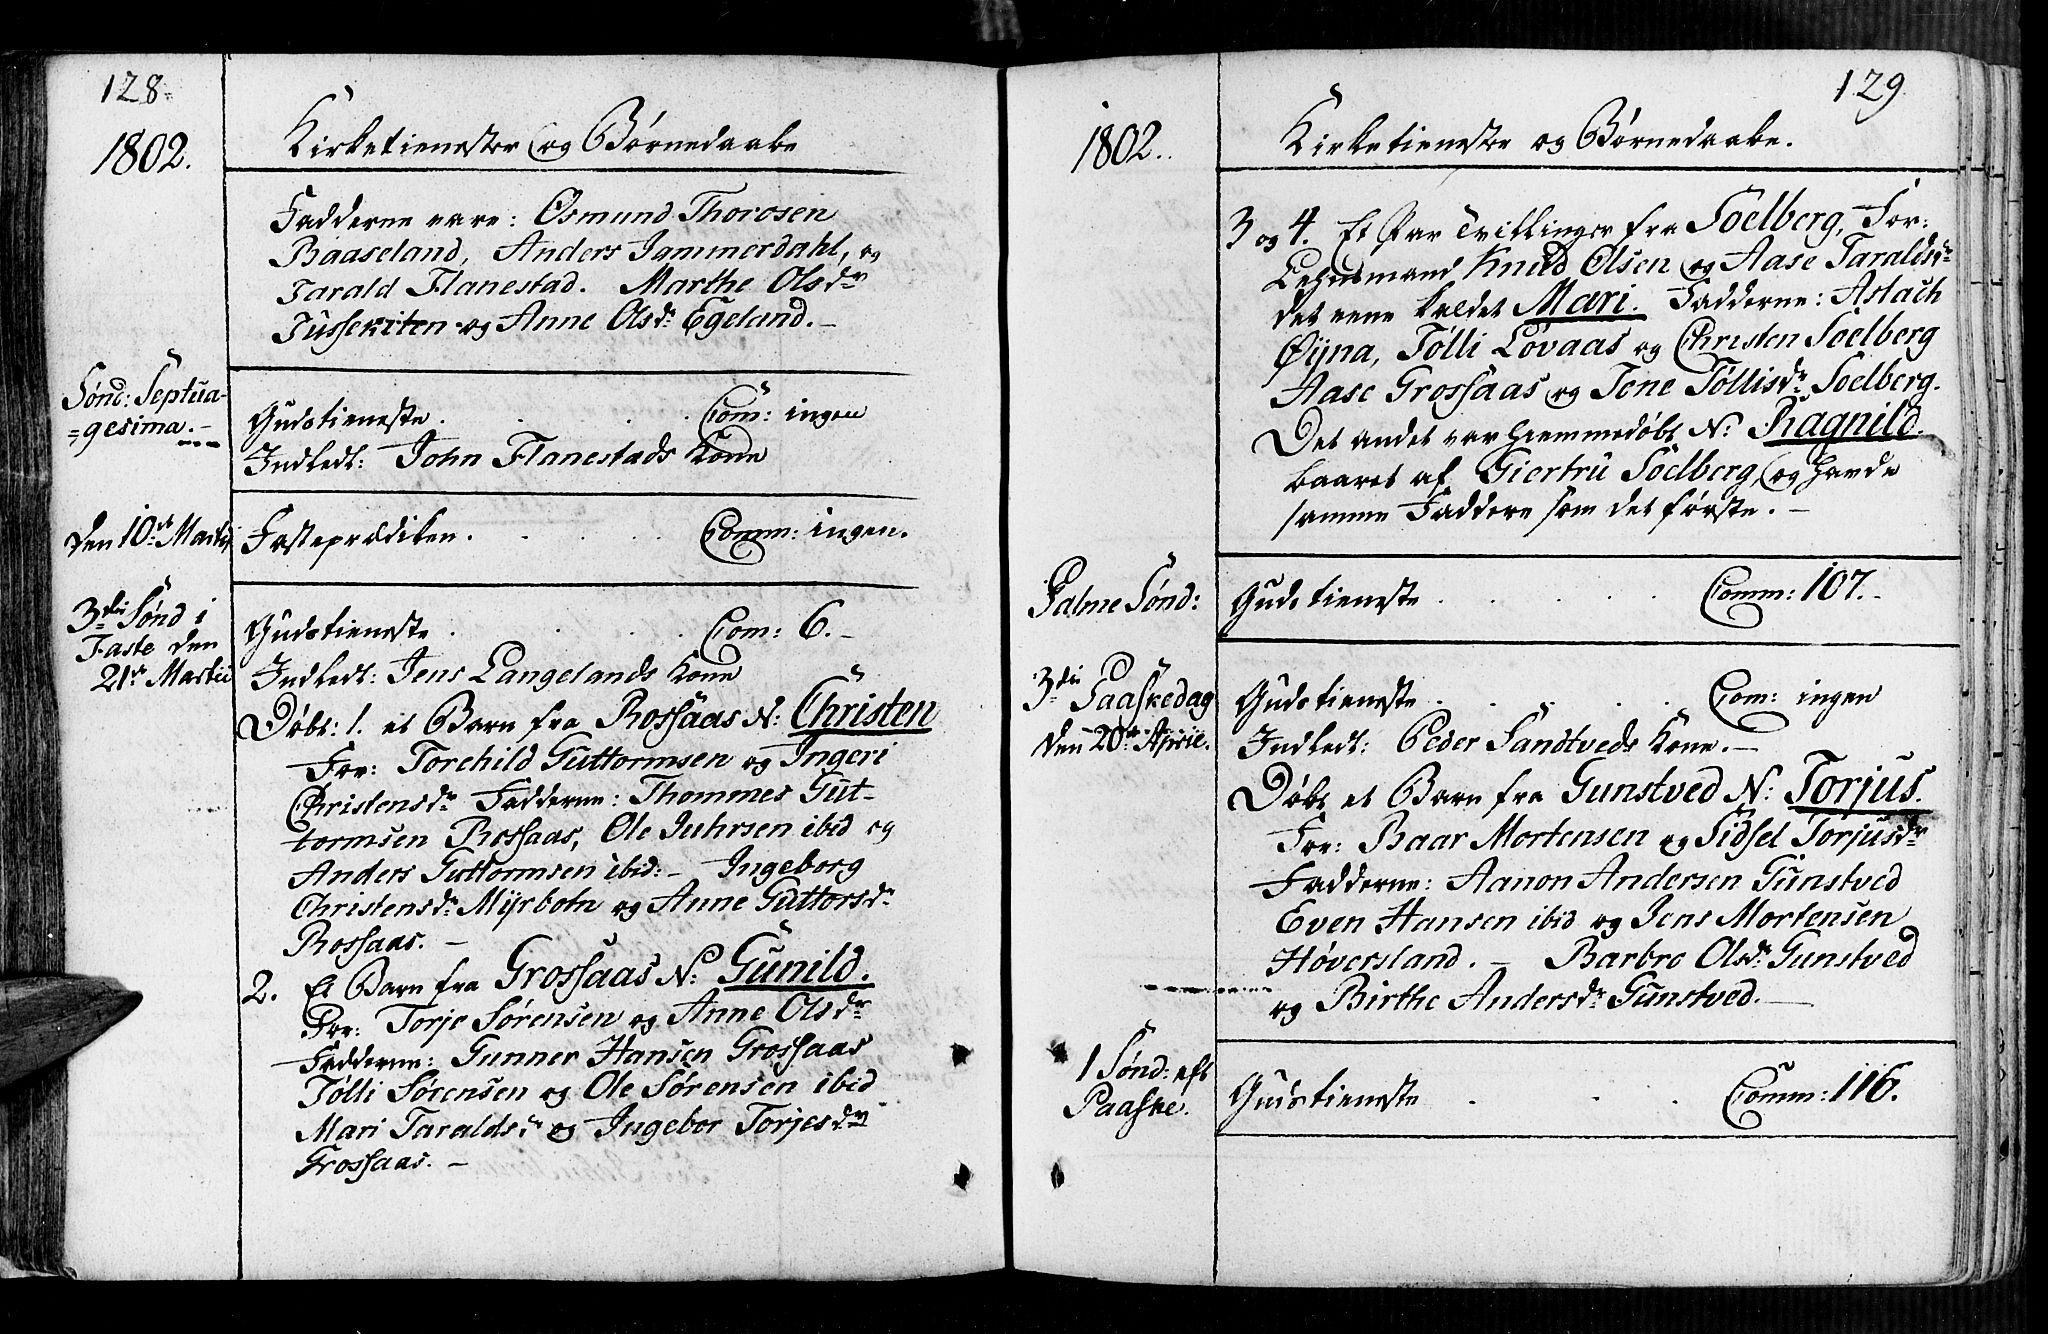 128.
1802.
Kirketienester og Børnedaabe
Fadderne vare: Osmund Thorosen
Baaseland, Anders Jammerdahl, og
Tarald Flanestad. Marthe Olsdr
Jussekiten og Anne Olsdr Egeland.-
Sønd: Septua-
=gesima.-
Gudstieneste. Com: ingen
Indledt: John Flanestads Kone
den 10de Martii
Fasteprædiken. Comm: ingen.
3die Sønd i
Faste den
21de Martii
Gudstieneste. Com: 6.-
Indledt: Jens Langelands Kone
Døbt: 1. et Barn fra Rossaas N: Christen
For: Torchild Guttormsen og Ingeri
Christensdr Fadderne: Thommes Gut-
tormsen Rossaas, Ole Juhrsen ibid og
Anders Guttormsen ibid:- Ingeborg
Christensdr Myrbotn og Anne Guttorsdr
Rossaas.-
2. Et Barn fra Grossaas N: Gunild.
For: Torje Sørensen og Anne Olsdr
Fadderne: Gunner Hansen Grossaas
Tølli Sørensen og Ole Sørensen ibid
Mari Taraldsdr og Ingebor Torjesdr
Grossaas.-
129
1802.
Kirketieneste og Børnedaabe.
3 og 4. Et Par Tvillinger fra Soelberg, For:
Lehnsmand Knud Olsen og Aase Taraldsdr
det eene kaldet Mari. Fadderne: Aslach
Øyna, Tølli Løvaas og Christen Soelberg
Aase Grossaas og Tone Tøllisdr Soelberg.
Det andet var hiemmedøbt N: Ragnild.
baaret af Giertru Soelberg, og havde
samme Faddere som det første.-
Palme Sønd:
Gudstieneste. Comm: 107.-
3die Paaskedag
den 20de April.
Gudstieneste. Com: ingen
Indledt: Peder Sandtveds Kone.-
Døbt et Barn fra Gunstved N: Torjus.
For: Baar Mortensen og Sidsel Torjusdr
Fadderne: Aanon Andersen Gunstved
Even Hansen ibid og Jens Mortensen
Høversland.- Barbro Olsdr Gunstved
og Birthe Andersdr Gunstved.-
1 Sønd: eft
Paaske.
Gudstieneste. Comm: 116.